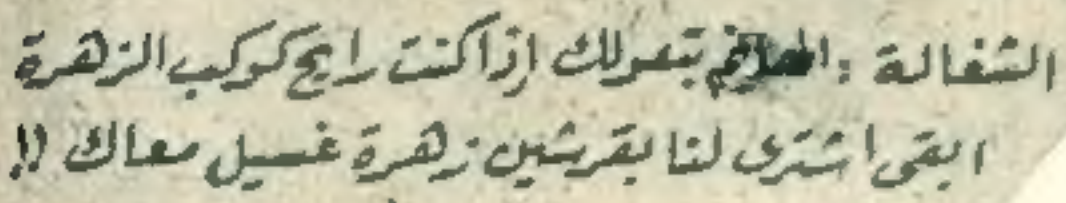 الشغالة : الهانم بتقولك إذا كنت رايح كوكب الزهرة
ابقى اشترى لنا بقرشين زهرة غسيل معاك !!